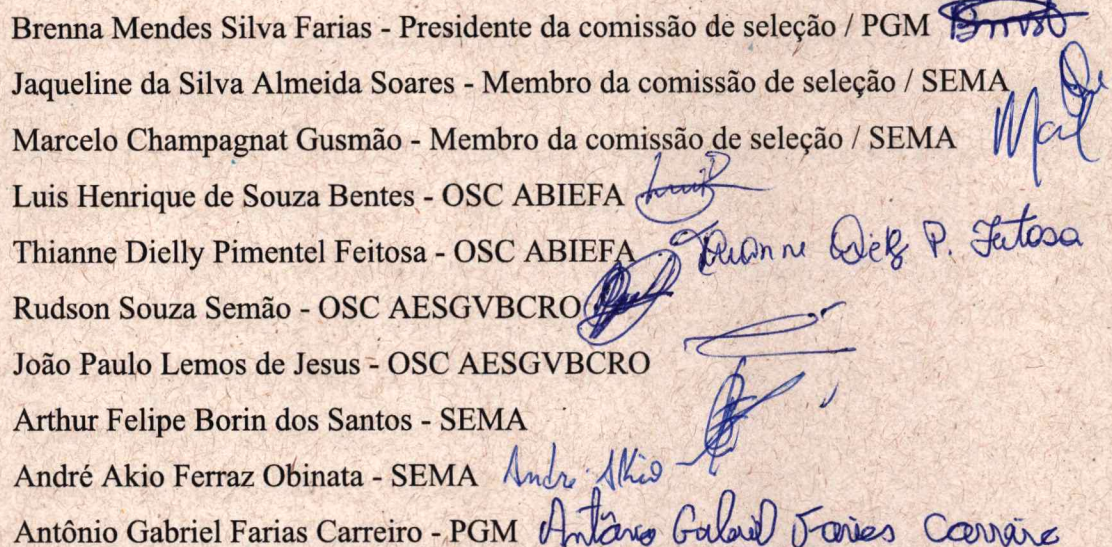 Brenna Mendes Silva Farias - Presidente da comissão de seleção / PGM
Jaqueline da Silva Almeida Soares - Membro da comissão de seleção / SEMA
Marcelo Champagnat Gusmão - Membro da comissão de seleção / SEMA
Luis Henrique de Souza Bentes - OSC ABIEFA
Thianne Dielly Pimentel Feitosa - OSC ABIEFA P. Feitosa
Rudson Souza Semão - OSC AESGVBCRO
João Paulo Lemos de Jesus - OSC AESGVBCRO
Arthur Felipe Borin dos Santos - SEMA
André Akio Ferraz Obinata - SEMA Andre Akio
Antônio Gabriel Farias Carreiro - PGM Antônio Gabriel Farias Carreiro